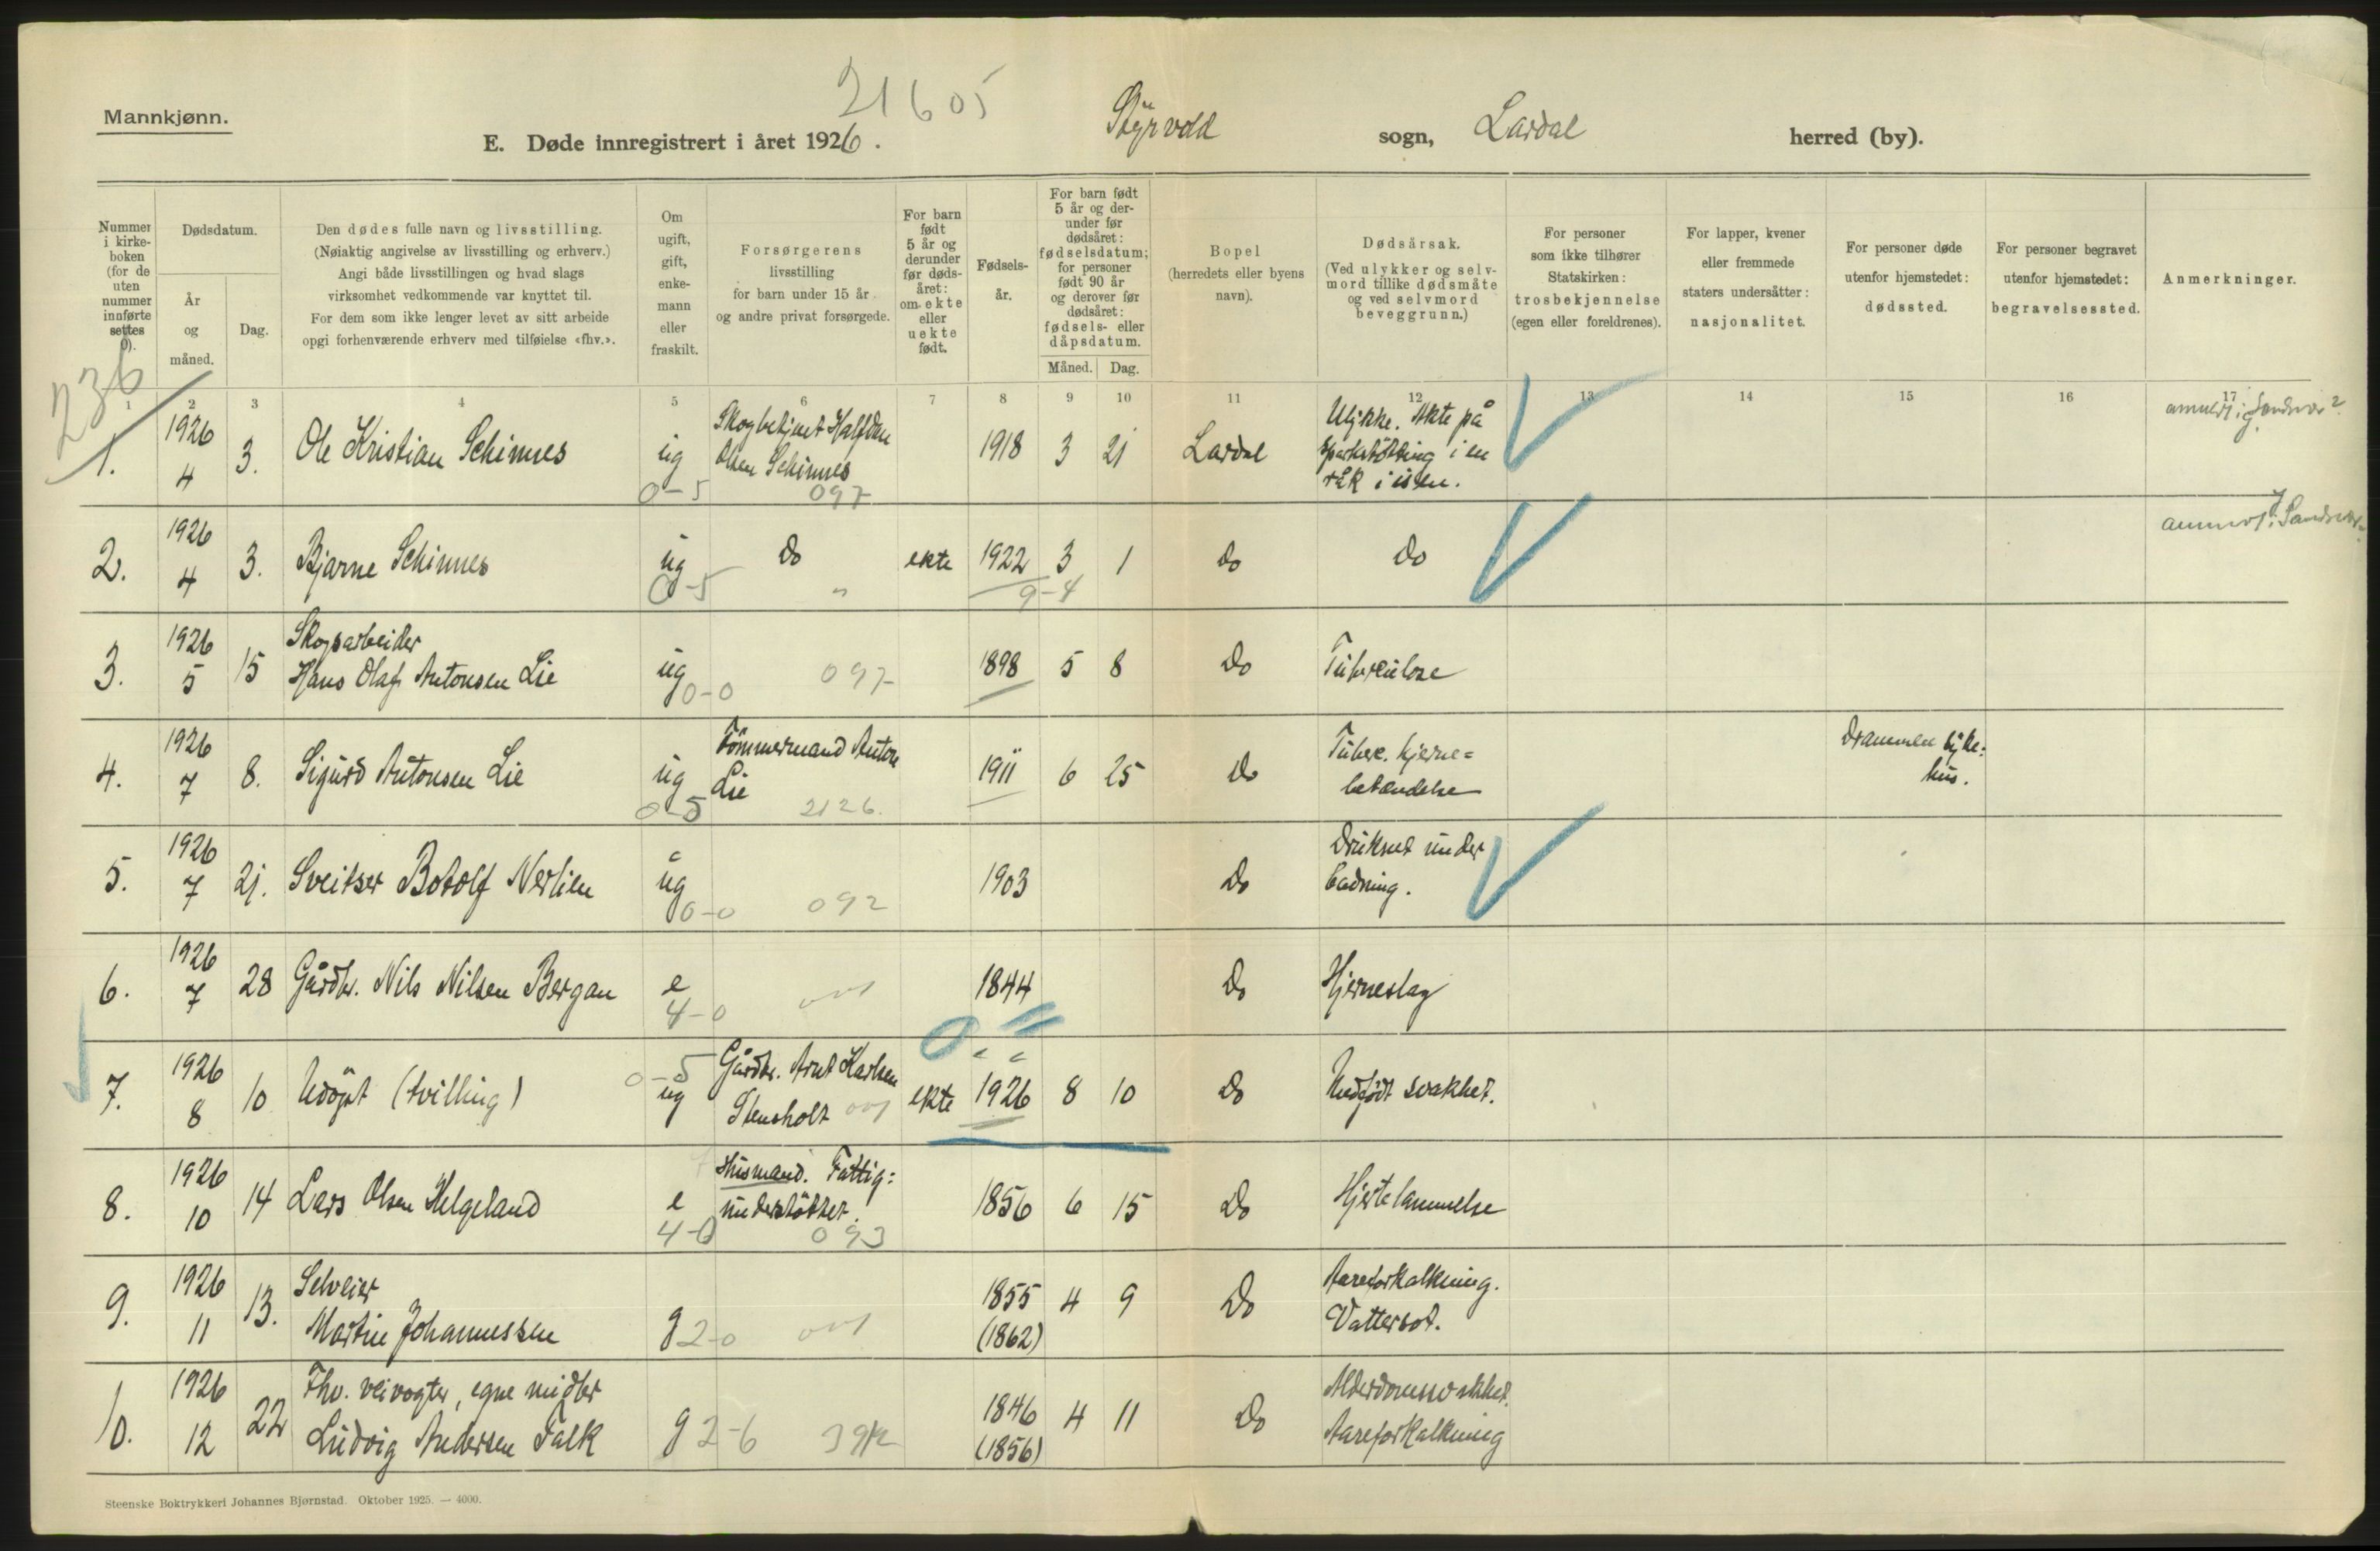 21605
Mannkjønn.
E. Døde innregistrert i året 1926. Styrvold sogn, Lardal herred (by).
Nummer i kirke-boken (for de uten nummer innførte settes 0).
Dødsdatum.
År og måned.
Dag.
Den dødes fulle navn og livsstilling.
(Nøiaktig angivelse av livsstilling og erhverv.)
Angi både livsstillingen og hvad slags
virksomhet vedkommende var knyttet til.
For dem som ikke lenger levet av sitt arbeide
opgi forhenværende erhverv med tilføielse «fhv.».
Om ugift, gift, enke-mann eller fraskilt.
Forsørgerens
livsstilling
for barn under 15 år
og andre privat forsørgede.
For barn født 5 år og derunder før døds-året: om ekte eller uekte født.
Fødsels-år.
For barn født 5 år og der-under før dødsåret: fødselsdatum; for personer født 90 år og derover før dødsåret: fødsels- eller dåpsdatum.
Måned. Dag.
Bopel
(herredets eller byens
navn).
Dødsårsak.
(Ved ulykker og selv-
mord tillike dødsmåte
og ved selvmord
beveggrunn.)
For personer
som ikke tilhører
Statskirken:
trosbekjennelse
(egen eller foreldrenes).
For lapper, kvener
eller fremmede
staters undersåtter:
nasjonalitet.
For personer døde
utenfor hjemstedet:
dødssted.
For personer begravet
utenfor hjemstedet:
begravelsessted.
Anmerkninger.
236
1 2 3 4 5 6 7 8 9 10 11 12 13 14 15 16 17
1. 1926 4 3. Ole Kristian Schinnes ug 0-5 Skogbetjent Halfdan Olsen Schinnes 097 1918 3 21 Lardal Ulykke. Akte på sparkstötting i en råk i isen. anmeldt i Sandsvær?
2. 1926 4 3. Bjarne Schinnes ug 0-5 do " ekte 1922 9-4 3 1 do do i Sandsvær
3. 1926 5 15 Skogsarbeider Hans Olaf Antonsen Lie ug 0-0 097 1898 5 8 do Tuberculose
4. 1926 7 8. Sigurd Antonsen Lie ug 0-5 Tömmermand Anton Lie 2126. 1911 6 25 do Tuberc. hjerne= betændelse Drammen syke: hus.
5. 1926 7 21. Sveitser Botolf Nerlien ug 0-0 092 1903 do Druknet under badning.
6. 1926 7 28 Gårdbr. Nils Nilsen Bergan e 4-0 1844 do Hjerneslag
7. 1926 8 10 Udöpt (tvilling) 0-5 ug Gårdbr. Arnt Karlsen Stensholt ekte 1926 8 10 do Medfödt svakhet.
8. 1926 10 14 Lars Olsen Helgeland e 4-0 Husmand. Fattig: understöttet. 093 1856 6 15 do Hjertelammelse
9. 1926 11 13. Selveier Martin Johannessen g 2-0 1855 (1862) 4 9 do Aareforkalkning. Vattersot.
10. 1926 12 22 Fhv. veivogter, egne midler Ludvig Andersen Falk g 2-6 1846 (1856) 4 11 do Alderdomssvakhet. Aareforkalkning
Steenske Boktrykkeri Johannes Bjørnstad. Oktober 1925. — 4000.